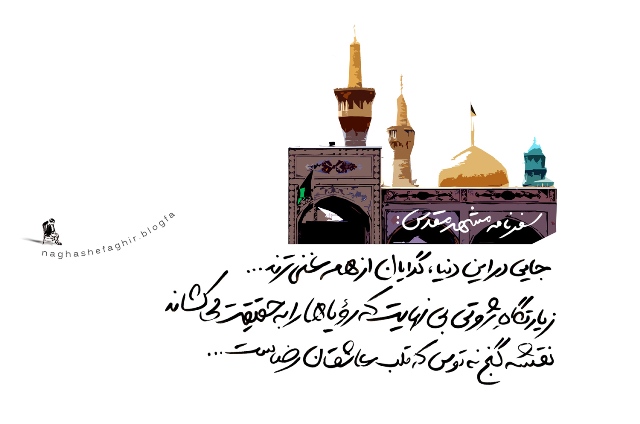 سفرنامه مشهد مقدس:
جایی در این دنیا، گدایان از همه غنی ترند...
زیارتگاه ثروتی بی نهایت که رؤیاها را به حقیقت می کشاند
نقشه گنج نه توس که قلب عاشقان رضاست...
naghashefaghir.blogfa